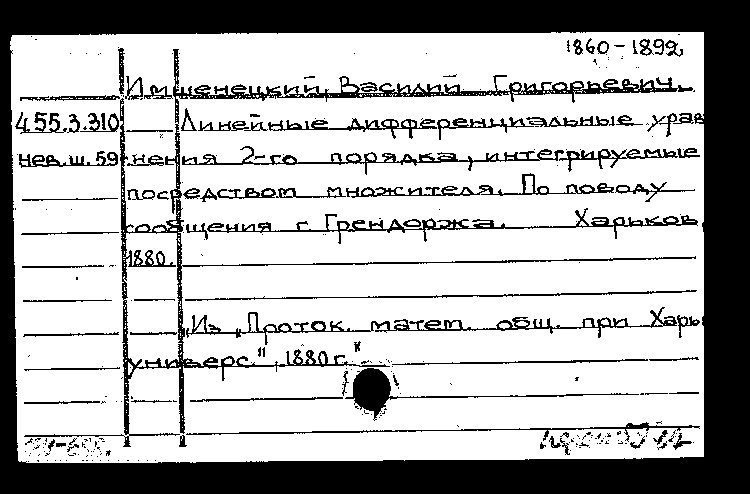 1860-1892.
Имшенецкий, Василий Григорьевич.
455.3.310 Линейные дифференциальные урав
нев.ш.59 нения 2-го порядка, интегрируемые
посредством множителя. По поводу
сообщения г. Грендоржа. Харьков,
1880.
"Из "Проток. матем. общ. при Харьк
универс.", 1880 г."